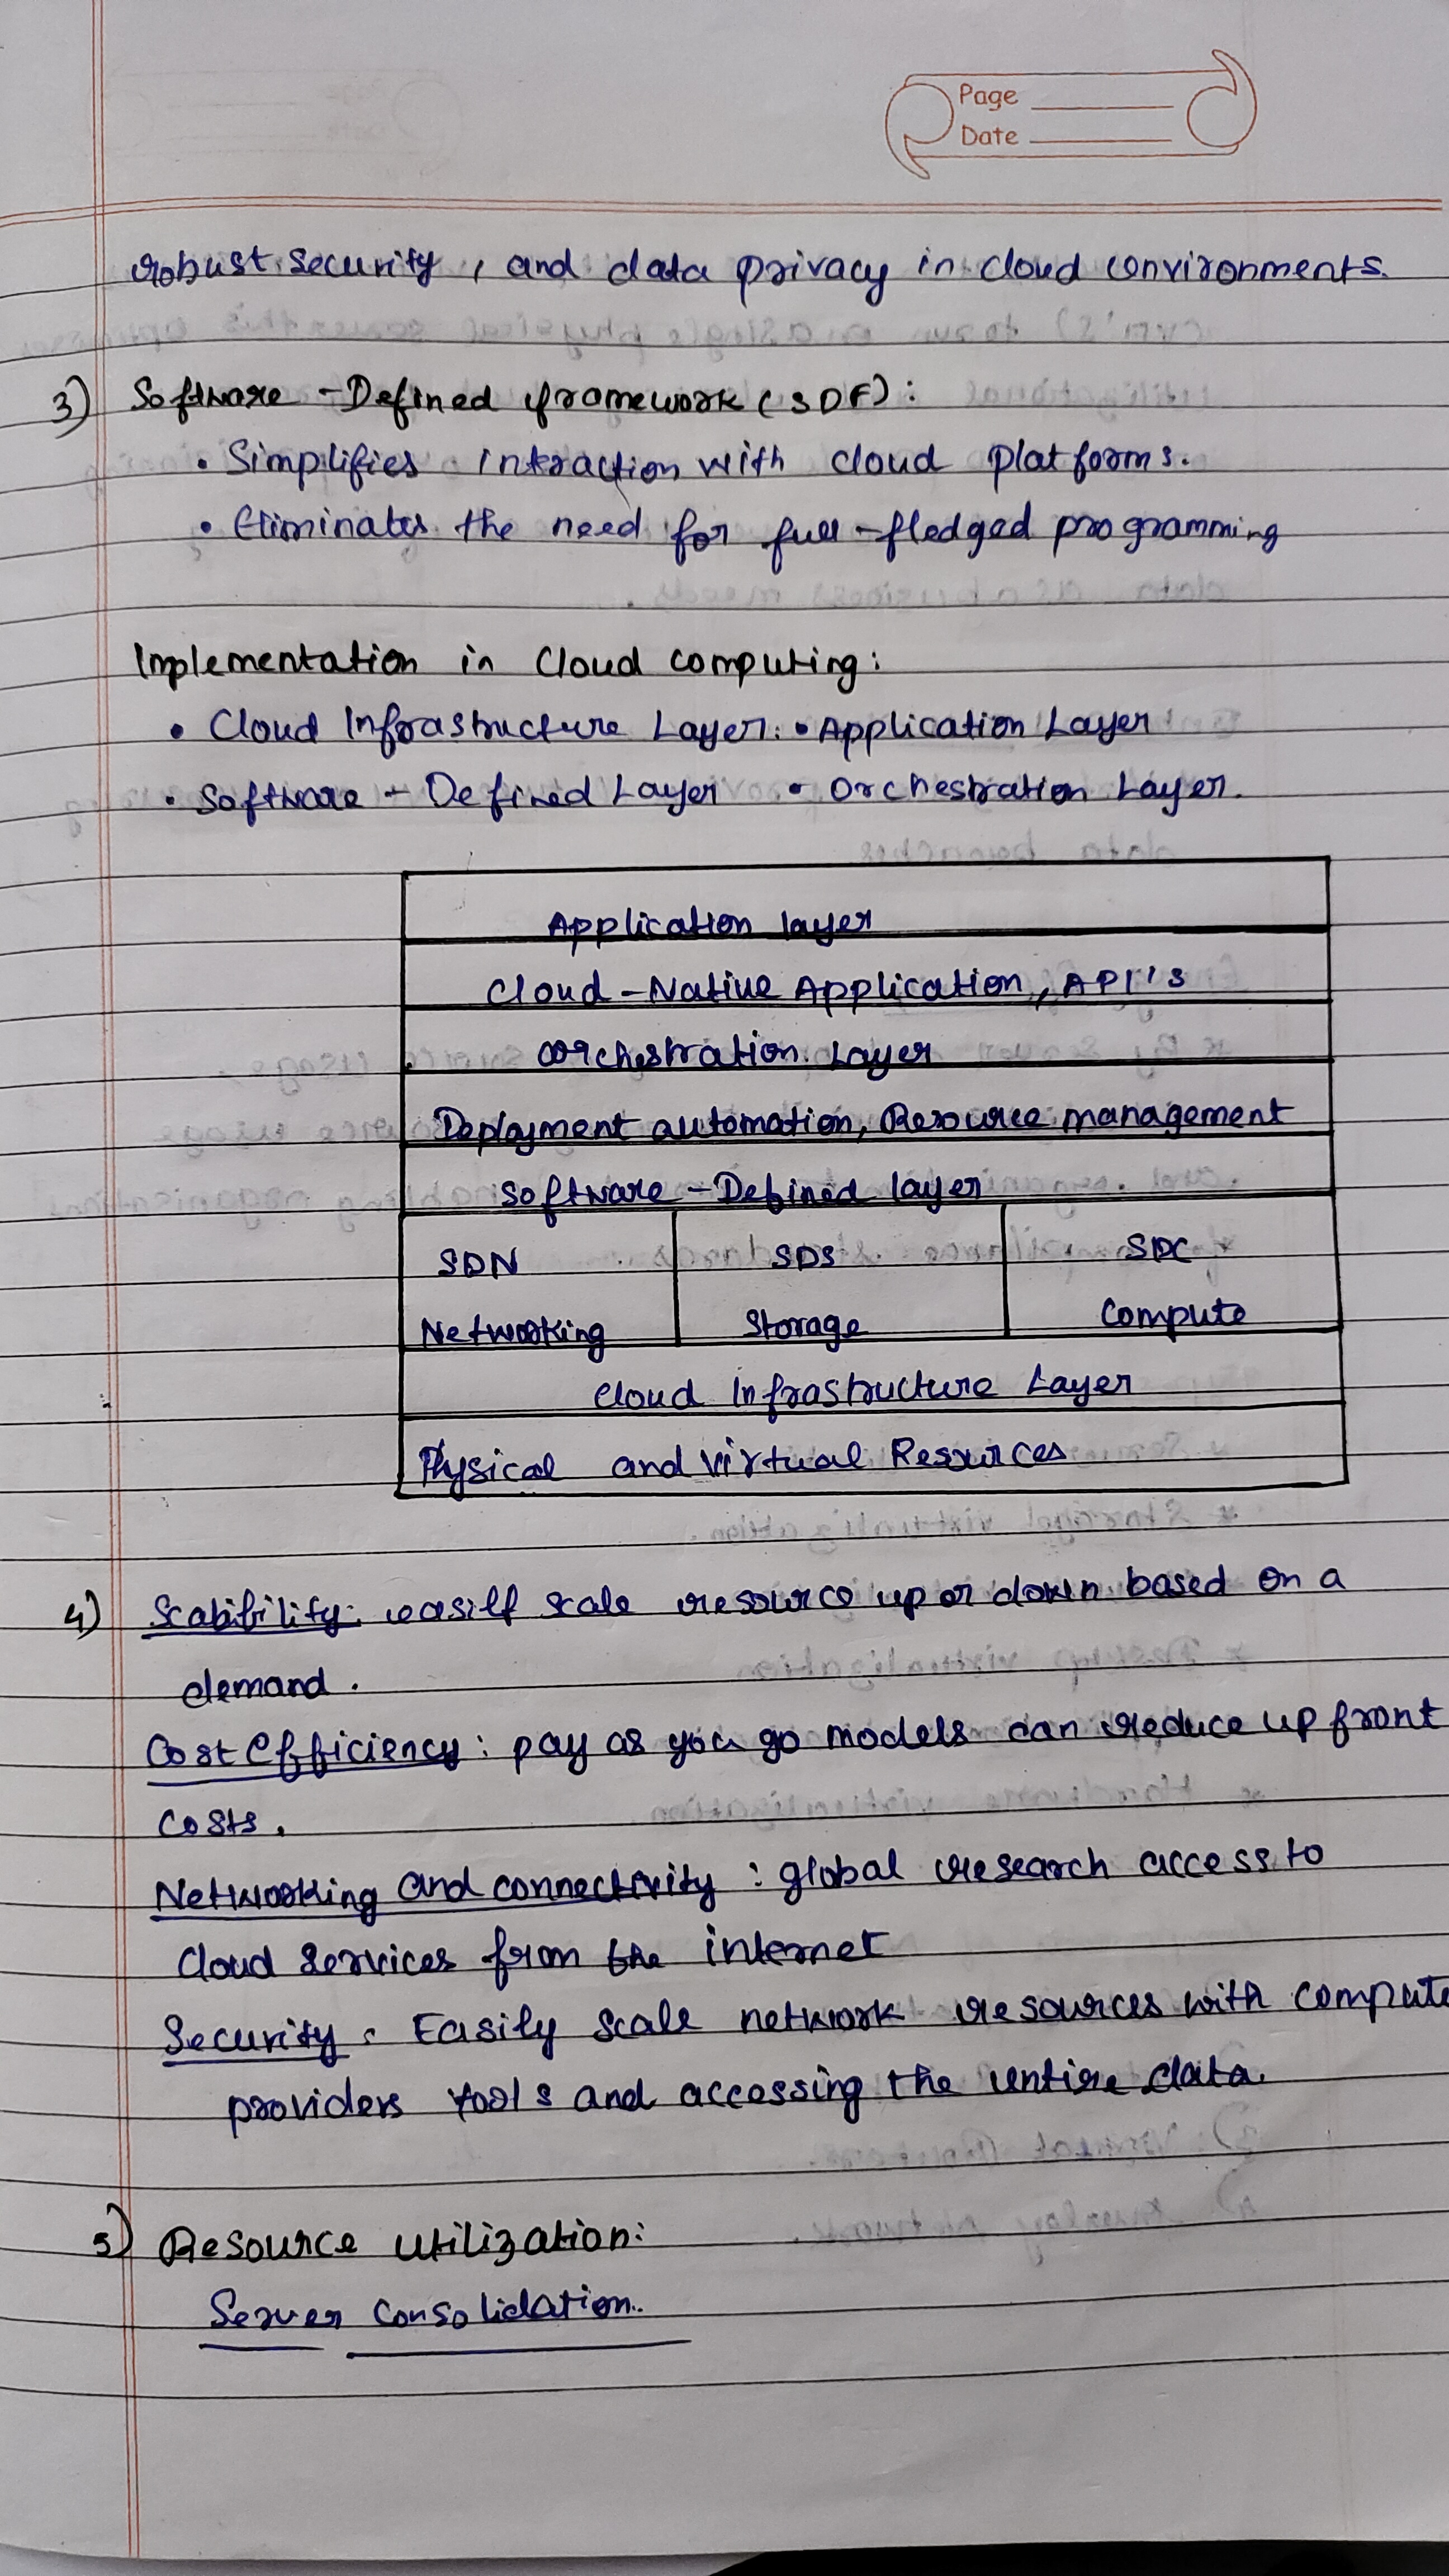 Page
Date
robust security, and data privacy in cloud environments.
3) Software-Defined framework (SDF):
• Simplifies interaction with cloud platforms.
• Eliminates the need for full-fledged programming
Implementation in Cloud computing:
• Cloud Infrastructure Layer. • Application Layer
• Software-Defined Layer • Orchestration Layer.
Application layer
Cloud-Native Application, API's
Orchestration Layer
Deployment automation, Resource management
Software-Defined layer
SDN SDS SDC
Networking Storage Compute
Cloud Infrastructure Layer
Physical and Virtual Resources
4) Scabibility: easilf scale resource up or down based on a
demand.
Cost efficiency: pay as you go models can reduce upfront
costs.
Networking and connectivity: global research access to
Cloud Services from the internet
Security: Easily scale network resources with compute
providers tools and accessing the entire data.
5) Resource utilization:
Server consolidation.